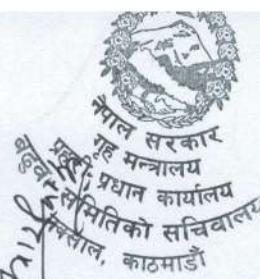 नेपाल सरकार
गृह मन्त्रालय
प्रहरी प्रधान कार्यालय
समितिको सचिवालय
काठमाडौं